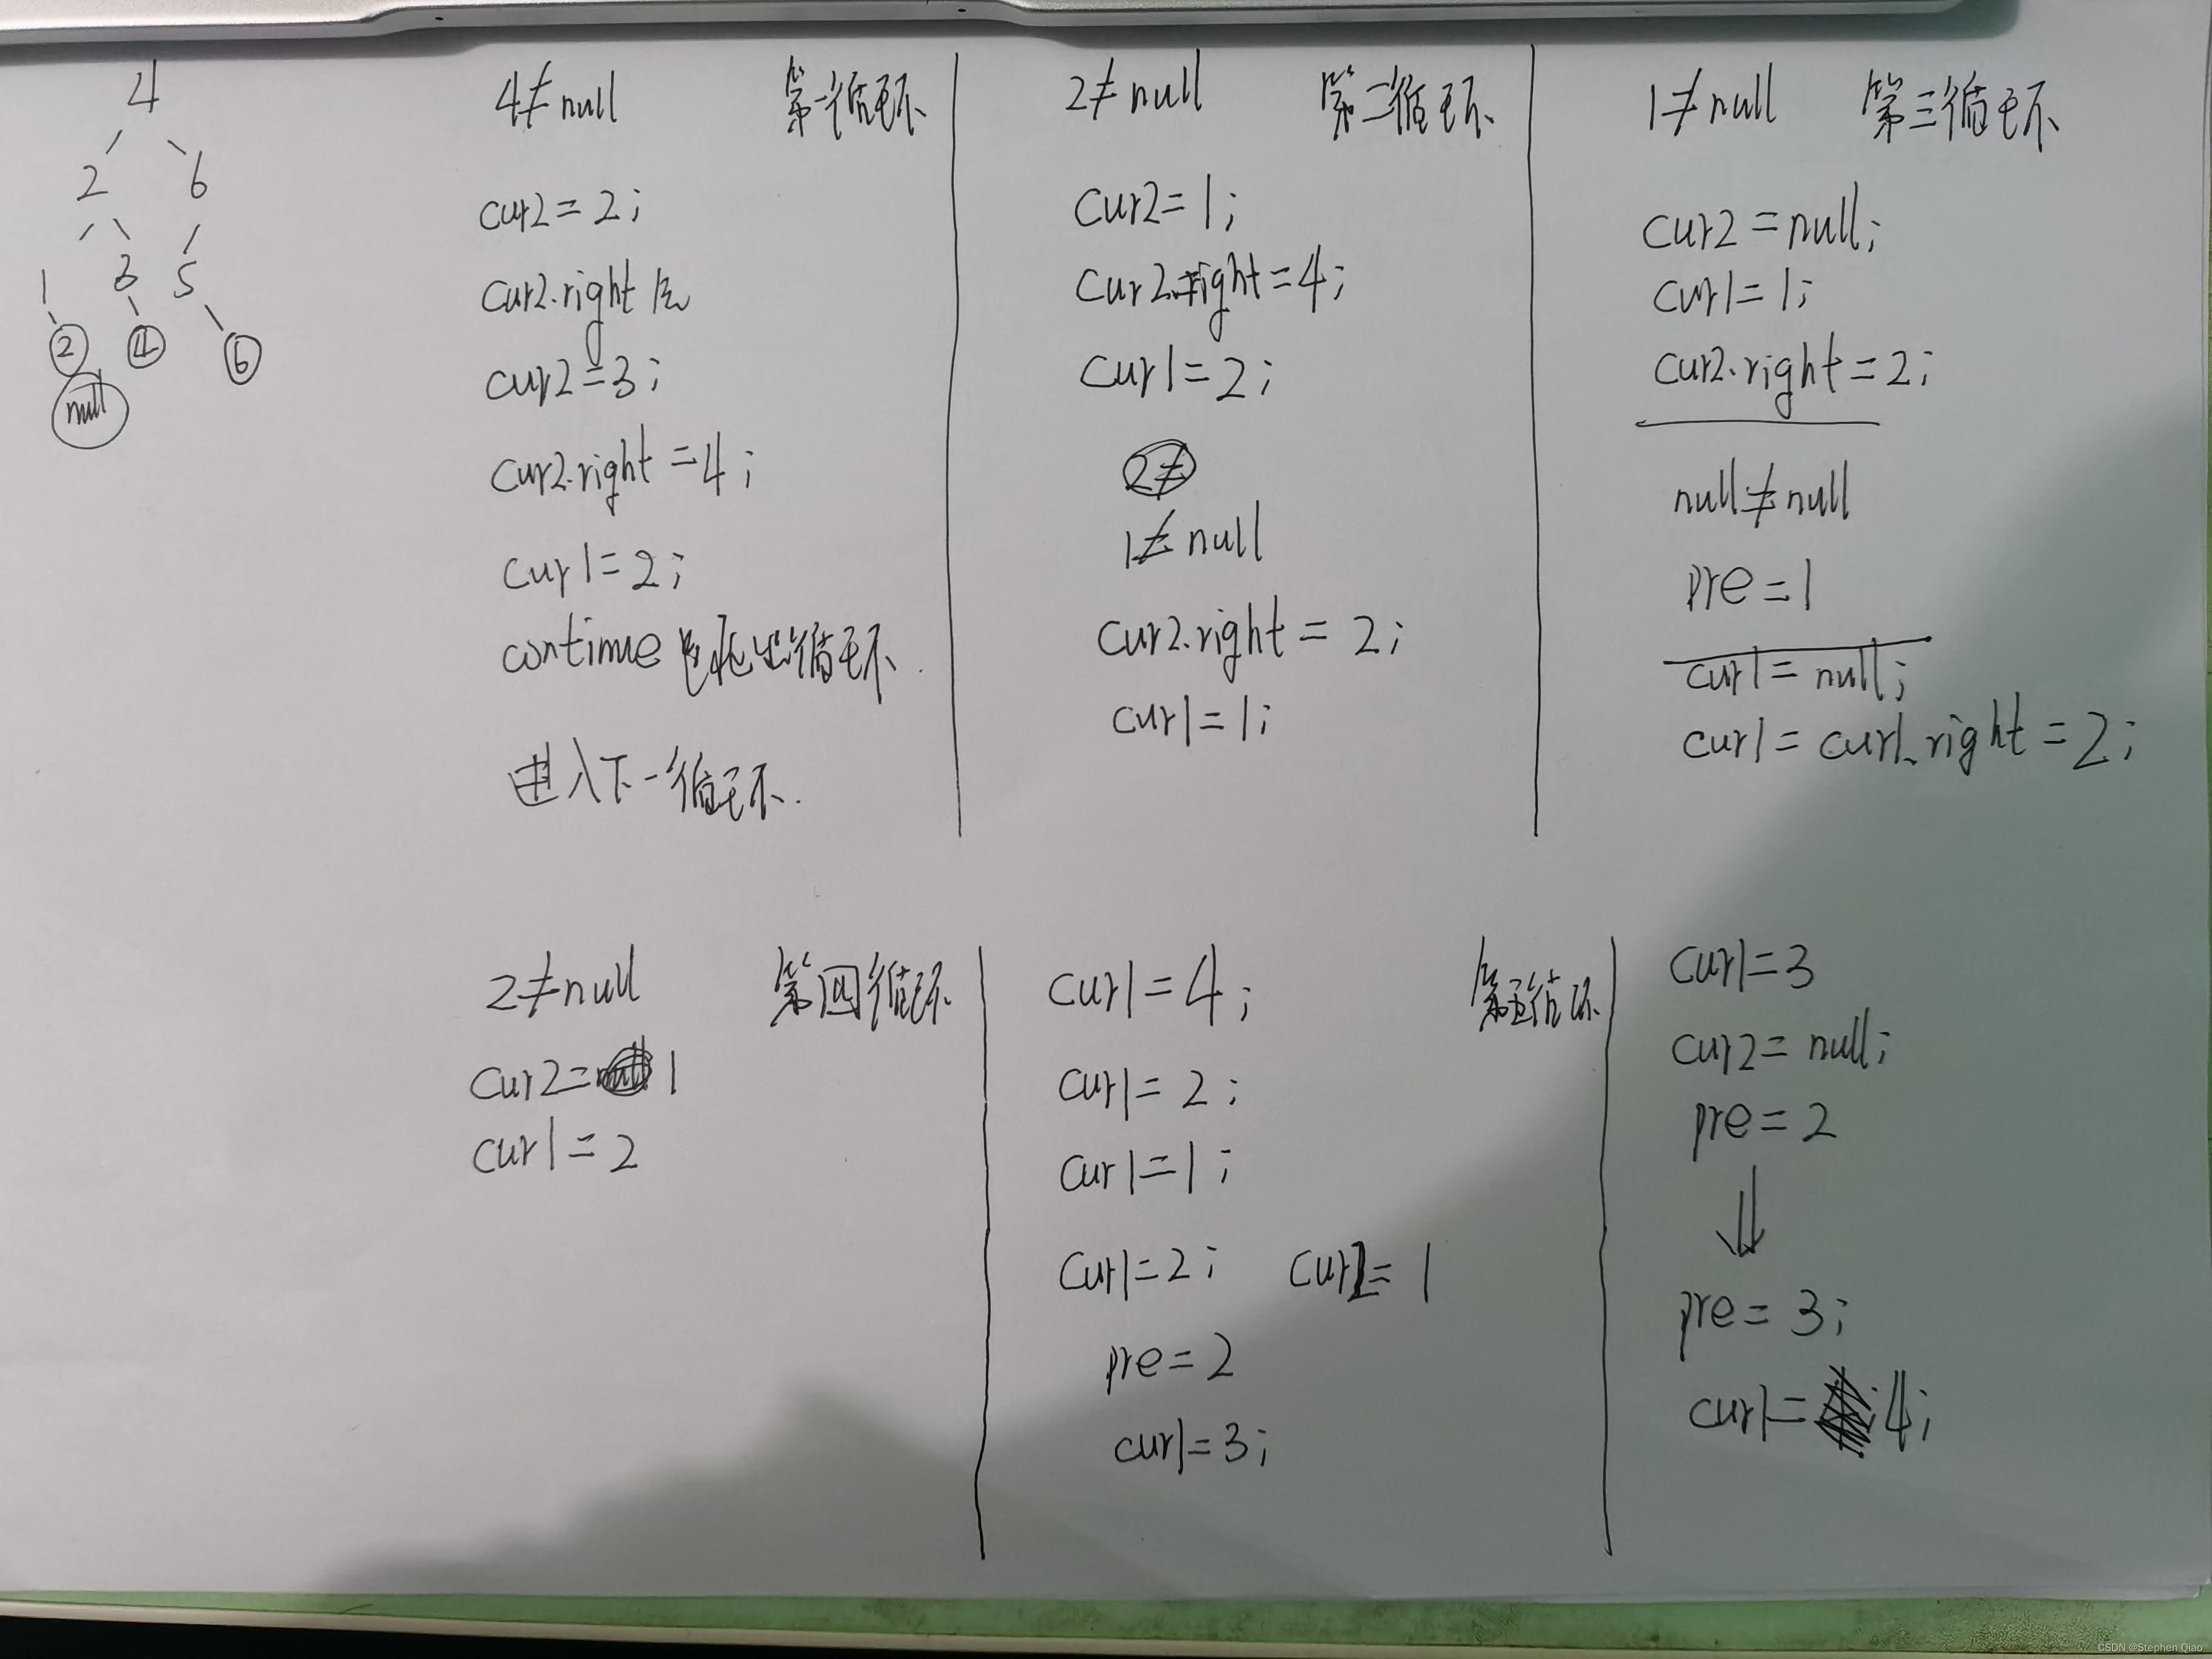 4
2 6
1 3 5
② ④ ⑥
null
4≠null 第一循环
cur2=2;
cur2.right
cur2=3;
cur2.right=4;
cur1=2;
continue 跳出循环.
进入下一循环.
2≠null 第二循环
cur2=1;
cur2.right=4;
cur1=2;
2≠
1≠null
cur2.right=2;
cur1=1;
1≠null 第三循环
cur2=null;
cur1=1;
cur2.right=2;
null≠null
pre=1
cur1=null;
cur1=cur1.right=2;
2≠null 第四循环
cur2=1
cur1=2
cur1=4; 第五循环
cur1=2;
cur1=1;
cur1=2; cur2=1
pre=2
cur1=3;
cur1=3
cur2=null;
pre=2
pre=3;
cur1=4;
CSDN @Stephen Qiao